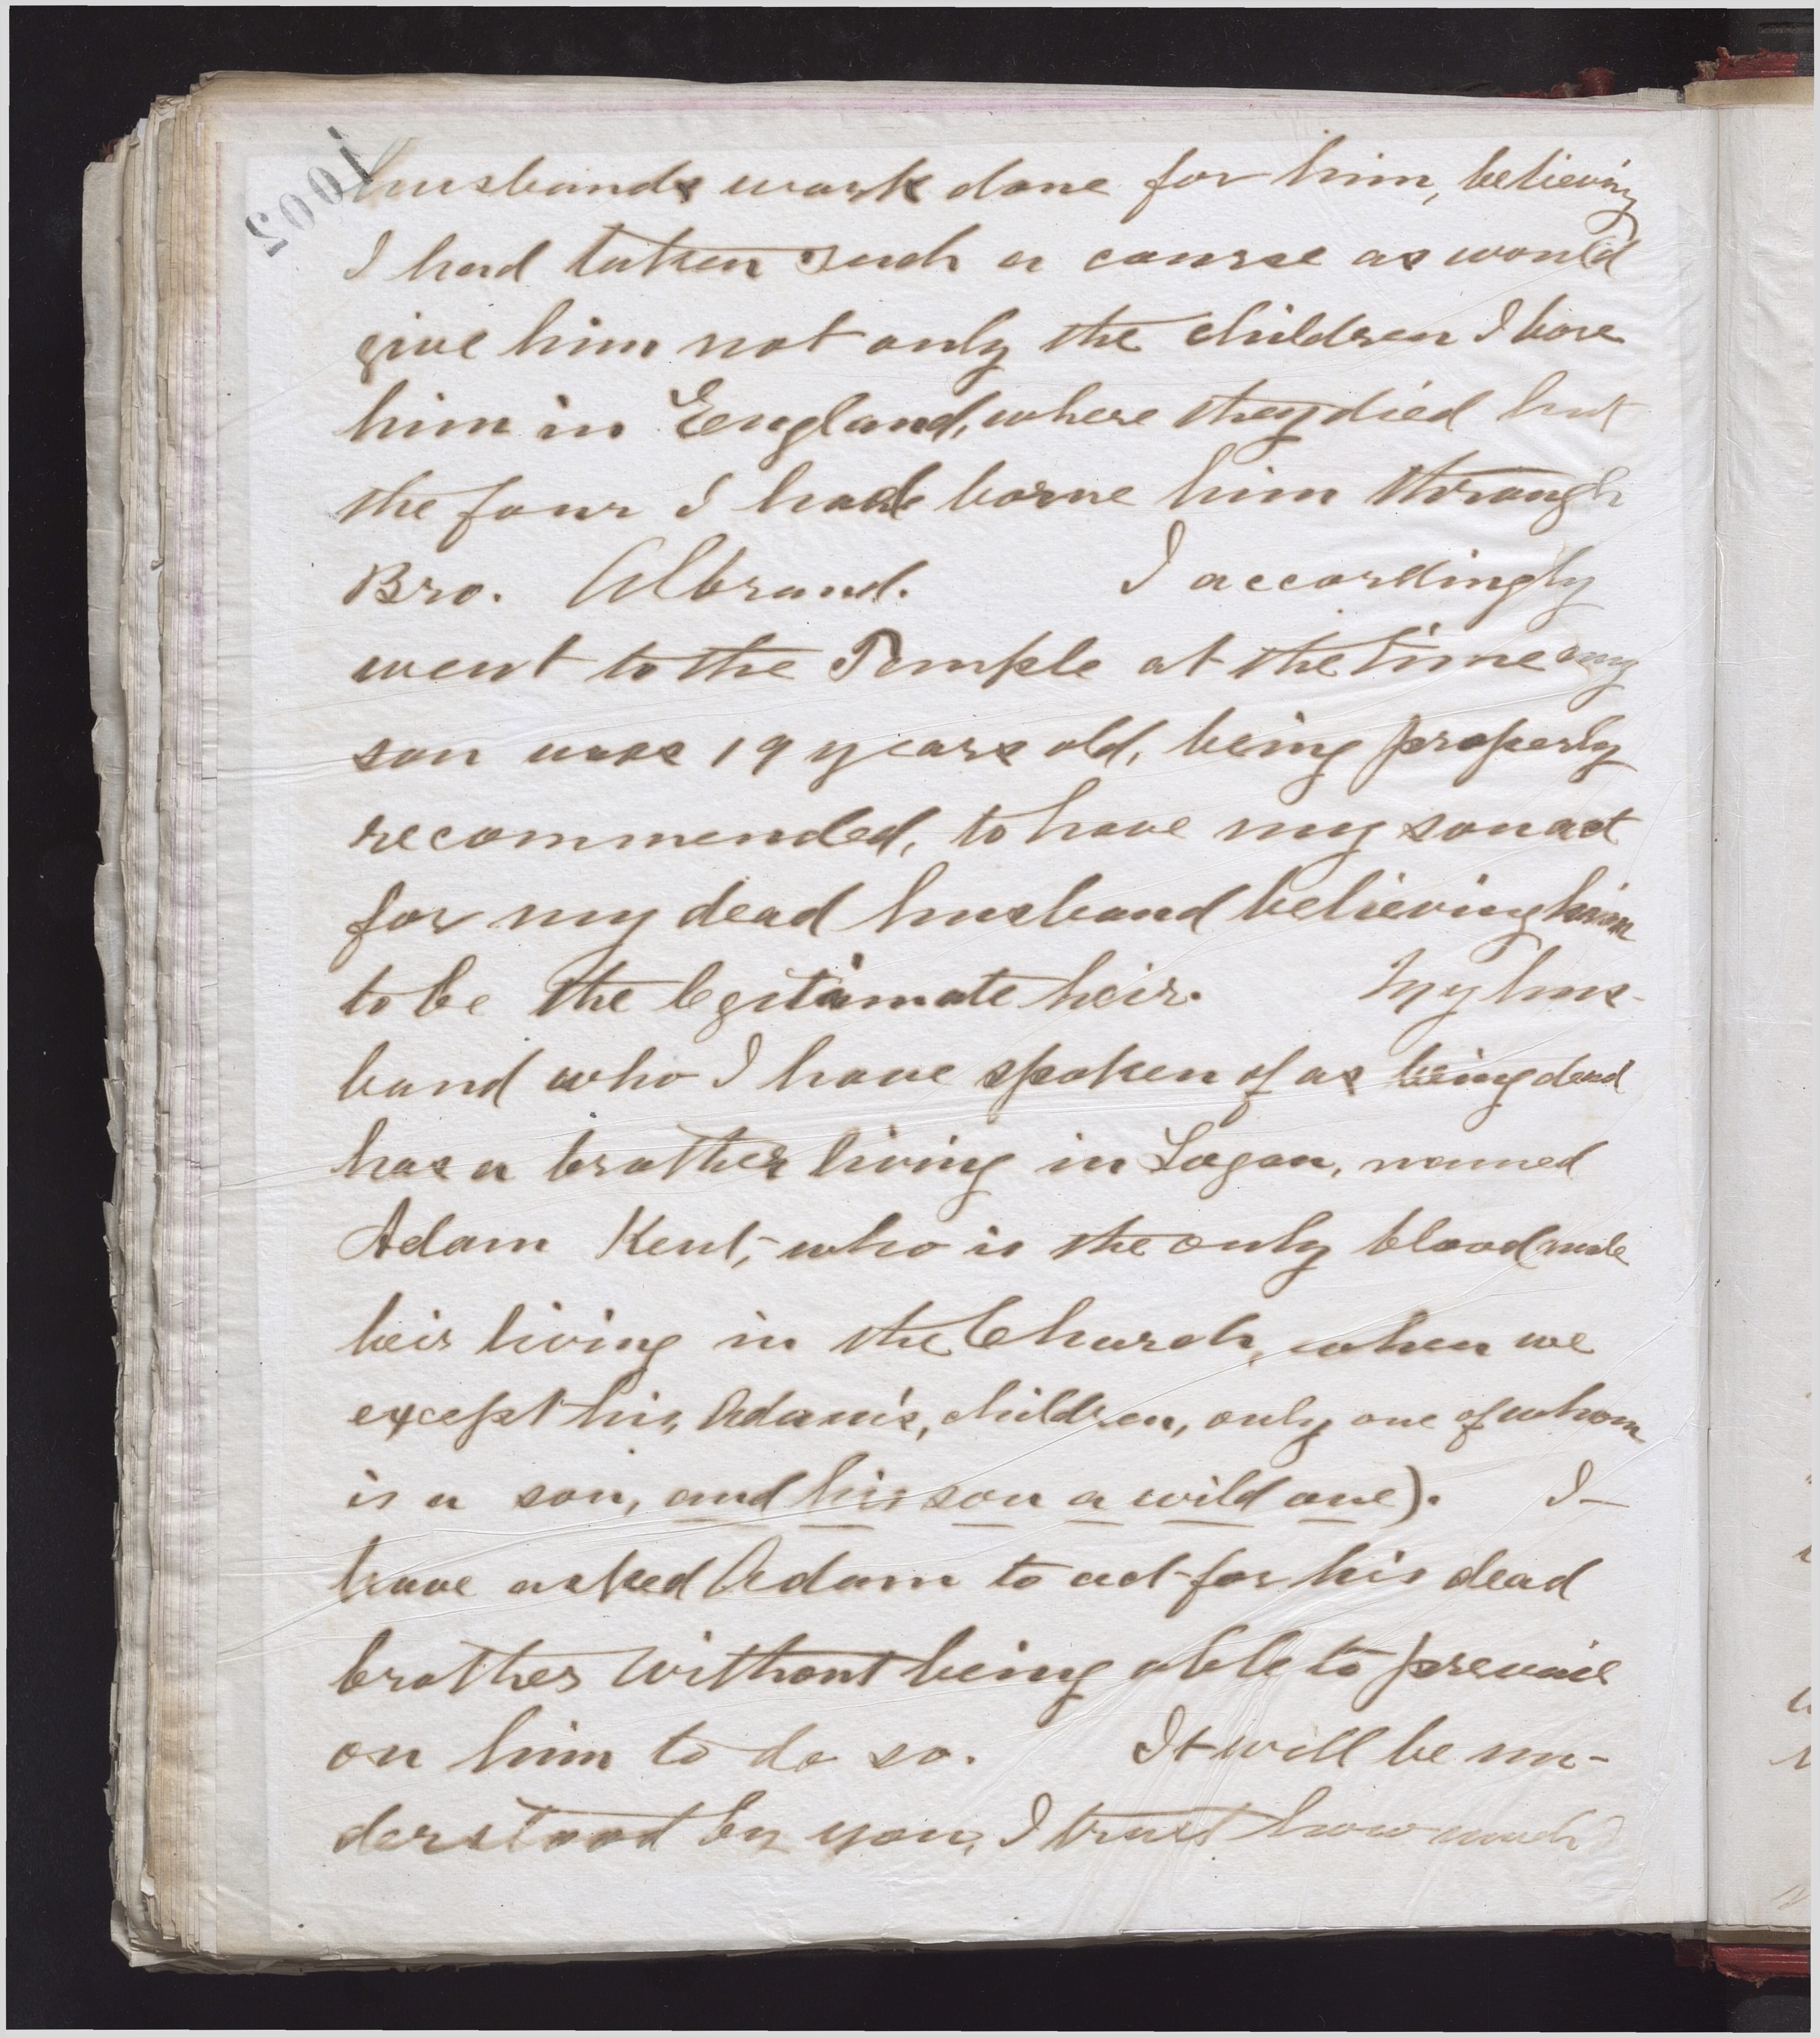 1002
husbands work done for him, believing
I had taken such a course as would
give him not only the children I bore
him in England, where they died but
the four I had borne him through
Bro. Albrand. I accordingly
went to the Temple at the time my
son was 19 years old, being properly
recommended, to have my son act
for my dead husband believing him
to be the legitimate heir. My hus-
band who I have spoken of as being dead
has a brother living in Logan, named
Adam Kent, who is the only blood male
heir living in the Church, when we
except his, Adam's, children, only one of whom
is a son, and his son a wild one). I
have asked Adam to act for his dead
brother without being able to prevail
on him to do so. It will be un-
derstood by you, I trust how much